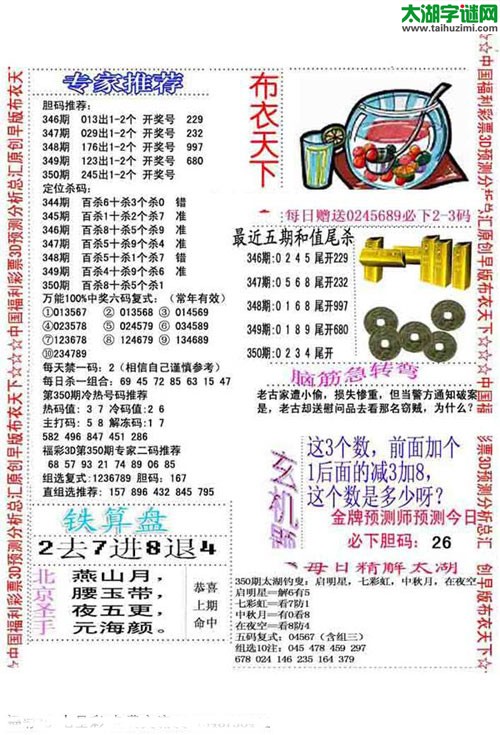 太湖字谜网
www.taihuzimi.com
☆中国福利彩票3D预测分析总汇原创早版布衣天下☆☆☆中国福利彩票3D预测分析总汇原创早版布衣天
专家推荐
胆码推荐:
346期 013出1-2个 开奖号 229
347期 029出1-2个 开奖号 232
348期 176出1-2个 开奖号 997
349期 123出1-2个 开奖号 680
350期 245出1-2个 开奖号
定位杀码:
344期 百杀6十杀3个杀0 错
345期 百杀1十杀2个杀7 准
346期 百杀0十杀4个杀6 准
347期 百杀8十杀7个杀9 准
348期 百杀5十杀1个杀7 错
349期 百杀4十杀9个杀6 准
350期 百杀8十杀5个杀1
万能100%中奖六码复式: (常年有效)
①013567 ② 013568 ③ 014569
④023578 ⑤ 024579 ⑥ 034589
⑦123678 ⑧ 124679 ⑨ 134689
⑩234789
每天禁一码: 2 (相信自己谨慎参考)
每日杀一组合: 69 45 72 85 63 15 47
第350期冷热号码推荐
热码值: 3 7 冷码值: 2 6
主打码: 5 8 解冻码: 1 7
582 496 847 451 286
福彩3D第350期专家二码推荐
68 57 93 21 74 89 06 85
组选复式: 1236789 胆码: 167
直组选推荐: 157 896 432 845 795
铁算盘
2去7进8退4
北京圣手
燕山月,
腰玉带,
夜五更,
元海颜。
恭喜
上期
命中
布衣天下
每日赠送0245689必下2-3码
最近五期和值尾杀
346期:0 2 4 5 尾开229
347期:0 5 6 8 尾开232
348期:0 1 6 8 尾开997
349期:0 1 8 9 尾开680
350期:0 2 3 4 尾开
脑筋急转弯
老古家遭小偷,损失惨重,但当警方通知破案
是,老古却送慰问品去看那名窃贼,为什么?
玄机
这3个数,前面加个
1后面的减3加8,
这个数是多少呀?
金牌预测师预测今日
必下胆码: 26
每日精解太湖
350期太湖钓叟:启明星,七彩虹,中秋月,在夜空
启明星=解6有5
七彩虹=看7防1
中秋月=有0看8
在夜空=看8防4
五码复式: 04567 (含组三)
组选10注: 045 478 459 297
678 024 146 235 164 379
中国福利彩票3D预测分析总汇原创早版布衣天下